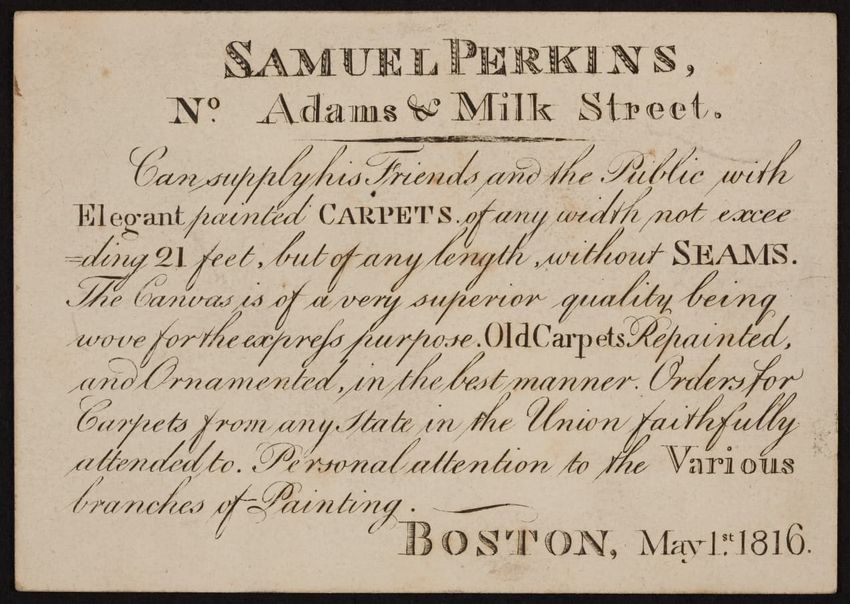 SAMUEL PERKINS,
No. Adams & Milk Street.
Can supply his Friends and the Public with
Elegant painted CARPETS. of any width not excee
=ding 21 feet, but of any length, without SEAMS.
The Canvas is of a very superior quality being
wove for the expreſs purpose. Old Carpets Repainted,
and Ornamented, in the best manner. Orders for
Carpets from any State in the Union faithfully
attended to. Personal attention to the Various
branches of Painting.
BOSTON, May 1st. 1816.